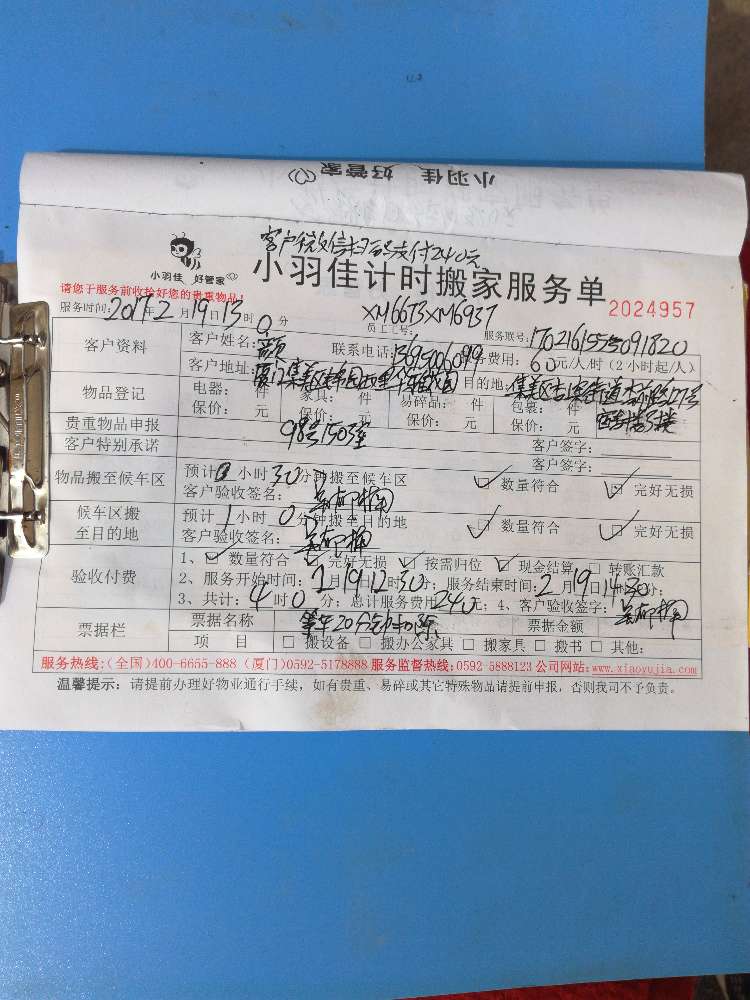 小羽佳 好管家
客户微信扫码支付240元
小羽佳 好管家
小羽佳计时搬家服务单
2024957
请您于服务前收拾好您的贵重物品!
XM6673XM6937
服务时间: 2019.2月19日13时0分 员工工号: 服务联号: 170216155509 1820
客户资料 客户姓名: 联系电话: 费用: 60元/人/时(2小时起/人)
客户地址: 厦门集美区 目的地: 集美区
物品登记 电器: 件 家具: 件 易碎品: 件 包装: 件
保价: 元 保价: 元 保价: 元 保价: 元
贵重物品申报 98号1503室 客户签字:
客户特别承诺 客户签字:
物品搬至候车区 预计0小时30分钟搬至候车区 ☑ 数量符合 ☑ 完好无损
客户验收签名:
候车区搬至目的地 预计1小时0分钟搬至目的地 ☑ 数量符合 ☑ 完好无损
客户验收签名:
验收付费 1、☑ 数量符合 ☑ 完好无损 ☑ 按需归位 ☑ 现金结算 □ 转账汇款
2、服务开始时间: 2月19日12时30分; 服务结束时间: 2月19日14时30分;
3、共计: 4时0分; 总计服务费用240元; 4、客户验收签字:
票据栏 票据名称 等车20分钟扣除 票据金额
项 目 □ 搬设备 □ 搬办公家具 □ 搬家具 □ 搬书 □ 其他:
服务热线:(全国)400-6655-888 (厦门)0592-5178888 服务监督热线:0592-5888123 公司网站:www.xiaoyujia.com
温馨提示: 请提前办理好物业通行手续,如有贵重、易碎或其它特殊物品请提前申报,否则我司不予负责。